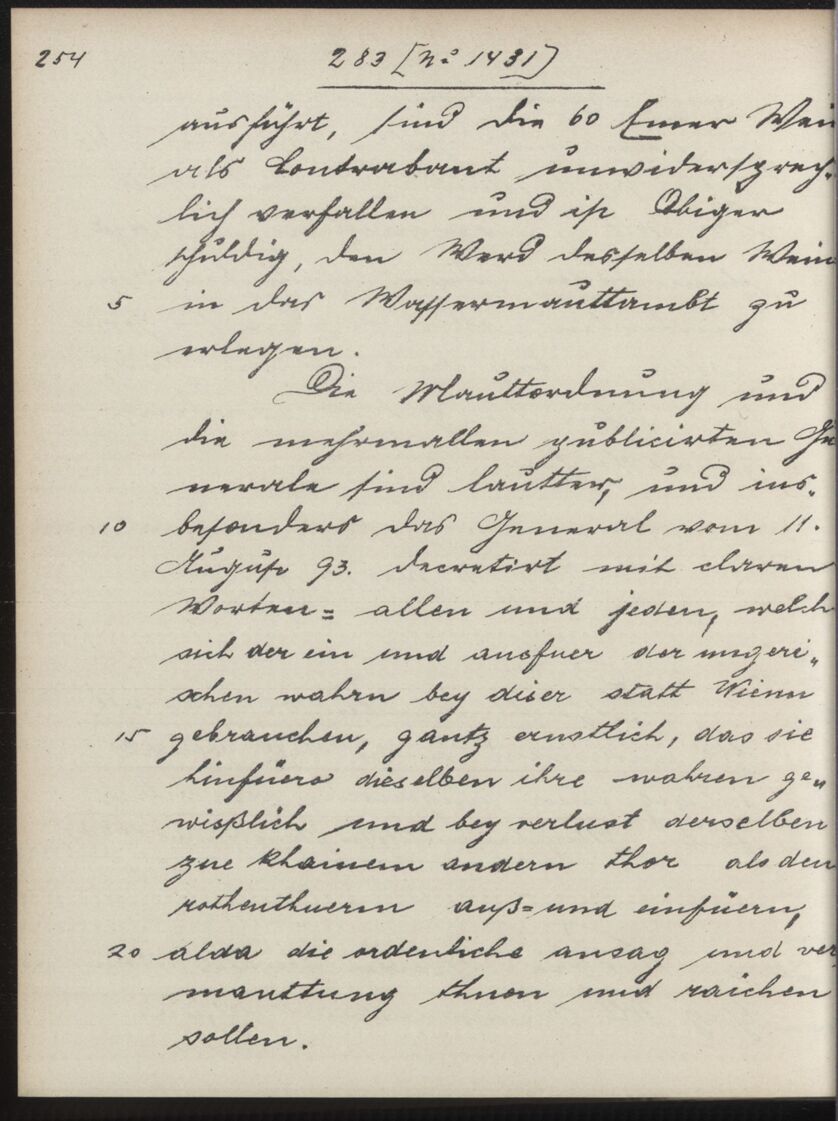 254 283 [No 1431]
ausführt, sind die 60 Emer Wein
als Contrabant unwidersprech-
lich verfallen und ist Obiger
schuldig, den Werd desselben Wein
5 in das Wassermauttambt zu
erlegen.
Die Mauttordnung und
die mehrmallen publicirten Ge
nerale sind lautter, und ins-
10 besonders das General vom 11.
August 93. decretirt mit claren
Worten = allen und jeden, welch
sich der ein und ausfuer der ungeri-
schen wahrn bey diser statt Wienn
15 gebrauchen, gantz ernstlich, das sie
hinfüero dieselben ihre wahren ge-
wißlich und bey verlust derselben
zue khainem andern thor als den
rothenthuerm auß- und einfüern,
20 alda die ordenliche ansag und ver
mauttung thuen und raichen
sollen.